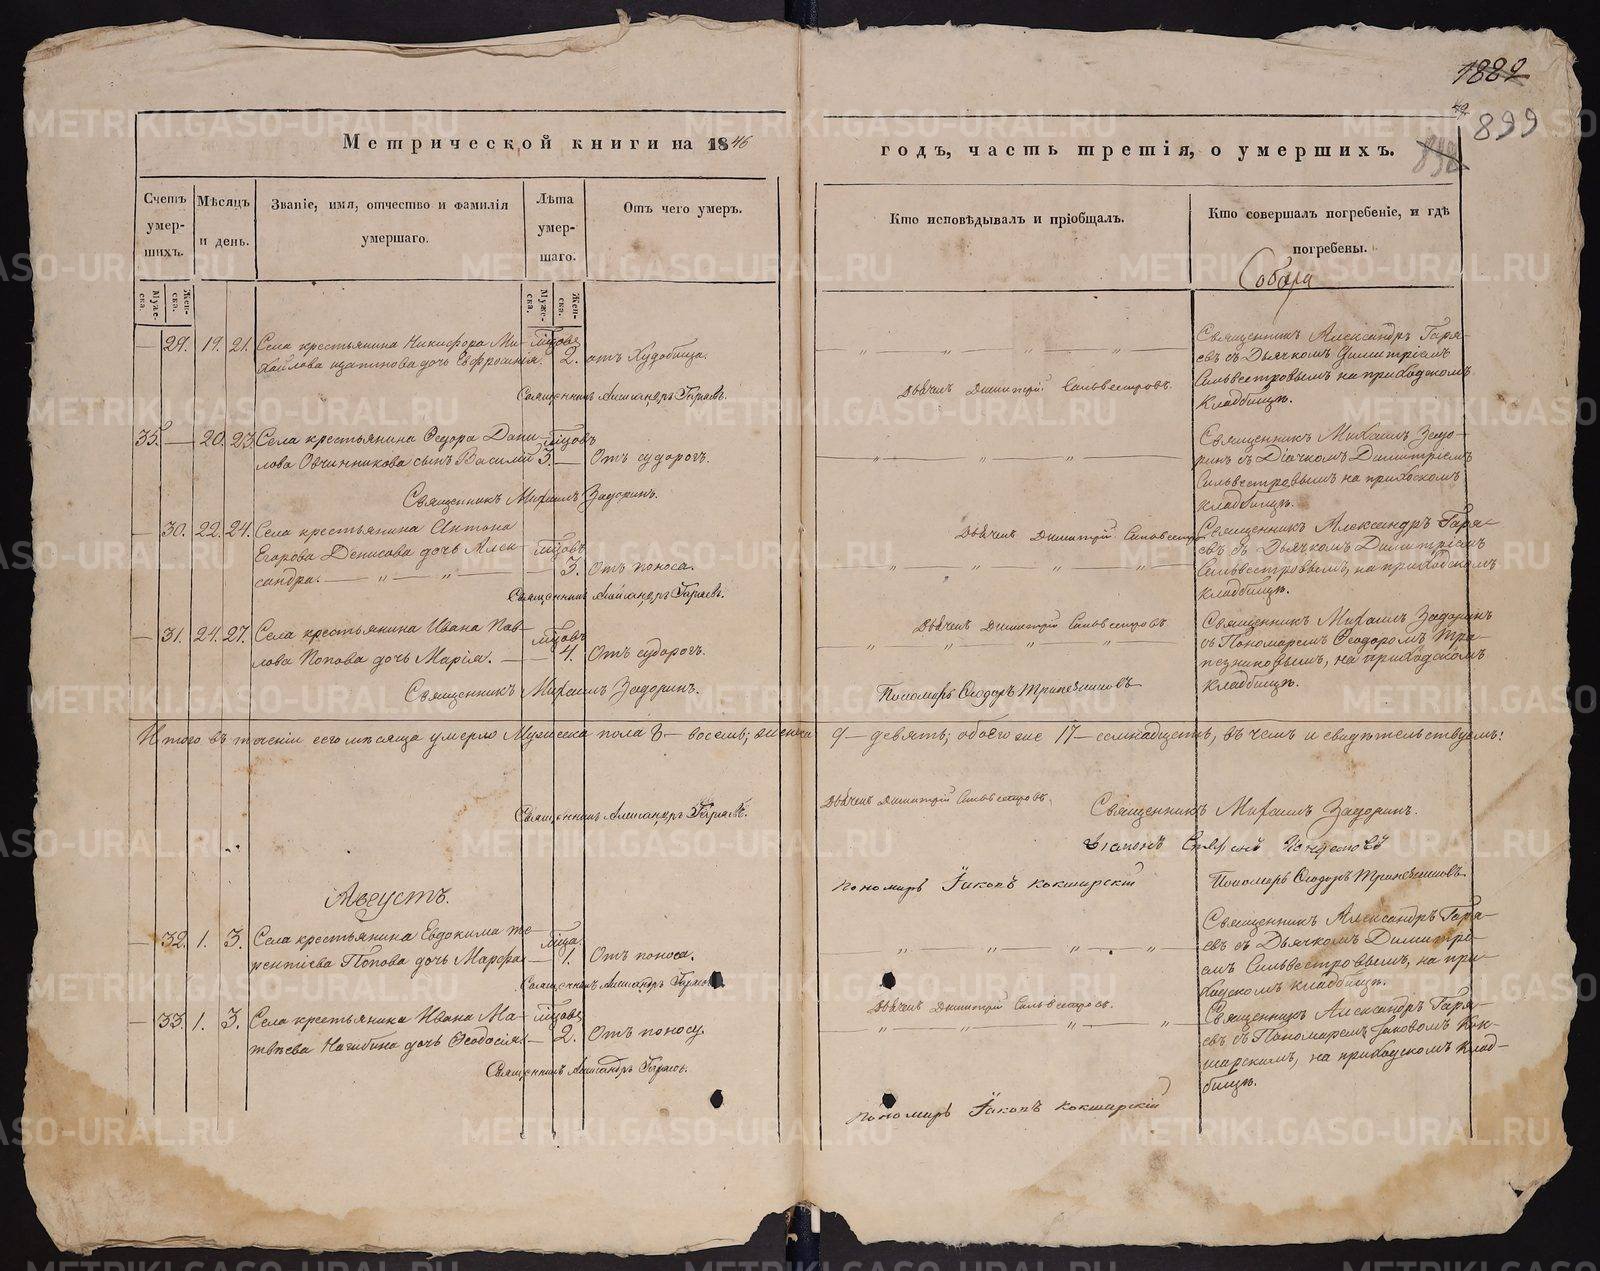 1882
899
898
Метрической книги на 1846
годъ, часть третія, о умершихъ.
Счетъ умер-шихъ.
Мѣсяцъ и день.
Званіе, имя, отчество и фамилія умершаго.
Лѣта умер-шаго.
Отъ чего умеръ.
Кто исповѣдывалъ и пріобщалъ.
Кто совершалъ погребеніе, и гдѣ погребены.
Собора
Муже-ска.
Жен-ска.
Муже-ска.
Жен-ска.
— 29. 19. 21. Села крестьянина Никифора Ми- мцовъ
хайлова дочь Евфросинія. 2. отъ худобища.
Священникъ Александръ Гаряевъ.
Дьячекъ Димитрій Сильвестровъ.
Священникъ Александръ Гаря-
евъ съ Дьячкомъ Димитріемъ
Сильвестровымъ на приходскомъ
кладбищѣ.
35. — 20. 23. Села крестьянина Ѳедора Дани- мцовъ
лова Овчинникова сынъ Василій 3. — Отъ судорогъ.
Священникъ Михаилъ Задоринъ.
Священникъ Михаилъ Задо-
ринъ съ Дьячкомъ Димитріемъ
Сильвестровымъ на приходскомъ
кладбищѣ.
— 30. 22. 24. Села крестьянина Антона
Егорова Денисова дочь Алек- мцовъ
сандра. — „ — „ — 3. Отъ поноса.
Священникъ Александръ Гаряевъ.
Дьячекъ Димитрій Сильвестровъ
Священникъ Александръ Гаря-
евъ съ Дьячкомъ Димитріемъ
Сильвестровымъ, на приходскомъ
кладбищѣ.
— 31. 24. 27. Села крестьянина Ивана Пав- мцовъ
лова Попова дочь Марія. — 4. Отъ судорогъ.
Священникъ Михаилъ Задоринъ.
Дьячекъ Димитрій Сильвестровъ
Пономарь Ѳеодоръ Трапезниковъ
Священникъ Михаилъ Задоринъ
съ Пономаремъ Ѳеодоромъ Тра-
пезниковымъ, на приходскомъ
кладбищѣ.
Итого въ теченіи сего мѣсяца умерло Мужеска пола 8 — восемь; женска 9 — девять; обоего же 17 — семнадцать, въ чемъ и свидѣтельствуемъ:
Священникъ Александръ Гаряевъ.
Дьячекъ Димитрій Сильвестровъ.
Священникъ Михаилъ Задоринъ.
Діаконъ Стефанъ
Пономарь Іаковъ Кокшарскій
Пономарь Ѳеодоръ Трапезниковъ.
Августъ.
— 32. 1. 3. Села крестьянина Евдокима Те- мца.
рентіева Попова дочь Марфа — 1. Отъ поноса.
Священникъ Александръ Гаряевъ
Дьячекъ Димитрій Сильвестровъ.
Священникъ Александръ Гаря-
евъ съ Дьячкомъ Димитрі-
емъ Сильвестровымъ, на при-
ходскомъ кладбищѣ.
— 33. 1. 3. Села крестьянина Ивана Ма- мцовъ
твѣева Нагибина дочь Ѳеодосія. — 2. Отъ поносу.
Священникъ Александръ Гаряевъ.
Пономарь Іаковъ Кокшарскій
Священникъ Александръ Гаря-
евъ съ Пономаремъ Іаковомъ Кок-
шарскимъ, на приходскомъ клад-
бищѣ.
METRIKI.GASO-URAL.RU